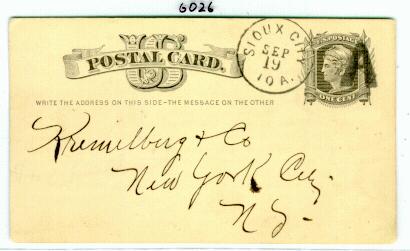 6026
US
POSTAL CARD.
SIOUX CITY
SEP
19
IOA.
U.S. POSTAGE
ONE CENT
WRITE THE ADDRESS ON THIS SIDE-THE MESSAGE ON THE OTHER
Kremelberg & Co
New York City.
N Y.